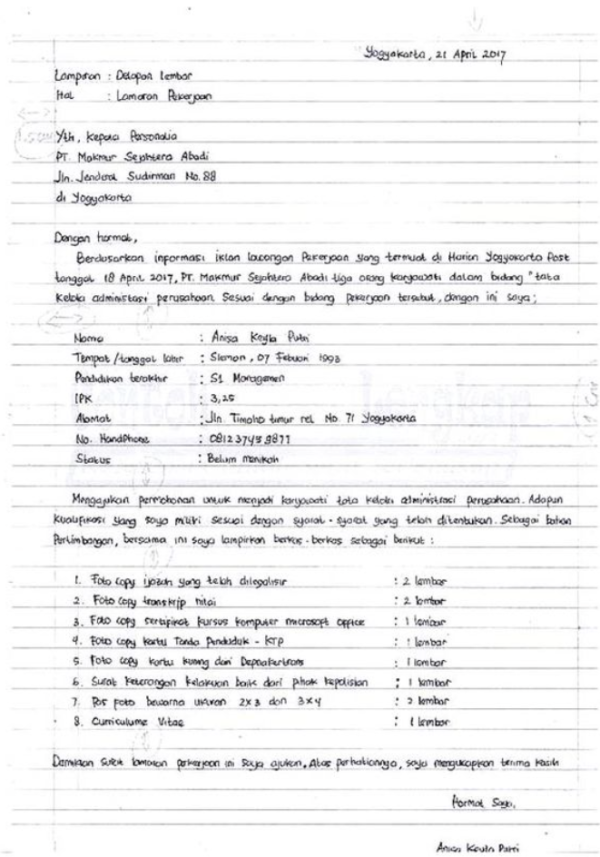 Yogyakarta, 21 April 2017
Lampiran : Delapan lembar
Hal : Lamaran Pekerjaan
Yth, Kepala Personalia
PT. Makmur Sejahtera Abadi
Jln. Jenderal Sudirman No. 88
di Yogyakarta
Dengan hormat,
Berdasarkan informasi iklan lowongan Pekerjaan yang termuat di Harian Yogyakarta Post
tanggal 18 April 2017, PT. Makmur Sejahtera Abadi tiga orang karyawati dalam bidang "tata
kelola administrasi perusahaan. Sesuai dengan bidang pekerjaan tersebut, dengan ini saya;
Nama : Anisa Keyla Putri
Tempat / tanggal lahir : Sleman, 07 Febuari 1993
Pendidikan terakhir : S1 Managemen
IPK : 3,25
Alamat : Jln. Timoho timur rel No. 71 Yogyakarta
No. Handphone : 081237459877
Status : Belum menikah
Mengajukan permohonan untuk menjadi karyawati tata kelola administrasi perusahaan. Adapun
kualifikasi yang saya miliki sesuai dengan syarat-syarat yang telah ditentukan. Sebagai bahan
Pertimbangan, bersama ini saya lampirkan berkas-berkas sebagai berikut :
1. Foto copy ijazah yang telah dilegalisir : 2 lembar
2. Foto copy transkrip nilai : 2 lembar
3. Foto copy sertipikat kursus komputer microsoft office : 1 lembar
4. Foto copy kartu Tanda Penduduk - KTP : 1 lembar
5. Foto copy kartu kuning dari Depnakertrans : 1 lembar
6. Surat keterangan kelakuan baik dari pihak kepolisian : 1 lembar
7. Pas foto bewarna ukuran 2x3 dan 3x4 : 2 lembar
8. Curriculume Vitae : 1 lembar
Demikian surat lamaran pekerjaan ini saya ajukan, Atas perhatiannya, saya mengucapkan terima kasih
Hormat Saya,
Anisa Keyla Putri